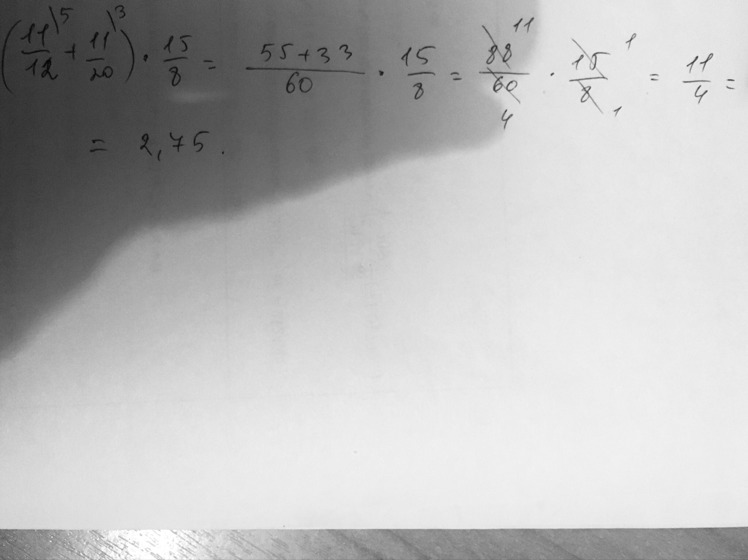 (11/12\5 + 11/20\3) · 15/8 = 55+33/60 · 15/8 = 88 11/60 4 · 15 1/8 1 = 11/4 =
= 2,75.